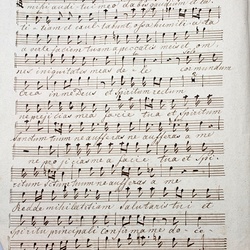 auditui meo dabis gaudium et læti-
tiam et exultabunt ossa humilia ta
averte faciem tuam a peccatis meis et om-
nes iniquitates meas de le cor mundum
crea in me Deus et spiritum rectum
ne projicias me a facie tua et spiritum
sanctum tuum ne auferas ne auferas a me
ne projicias me a facie tua et spi-
ritum sanctum tuum ne auferas a me
Redde mihi lætitiam salutaris tui et
spiritu principali confirma me do ce